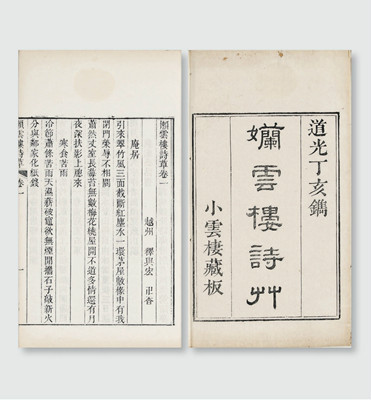 道光丁亥鐫
嬾雲樓詩艸
小雲棲藏板
嬾雲樓詩草卷一
越州 釋與宏 卍香
庵居
引來翠竹風三面截斷紅塵水一環茅屋數椽中有我
閉門榮辱不相關
蕭然丈室長莓苔無數梅花繞屋開不道多情還有月
夜深扶影上 來
寒食苦雨
冷節蕭條苦雨天濕薪破竈欲無煙閒攜石子敲新火
分與鄰家化紙錢
嬾雲樓詩草 卷一 一